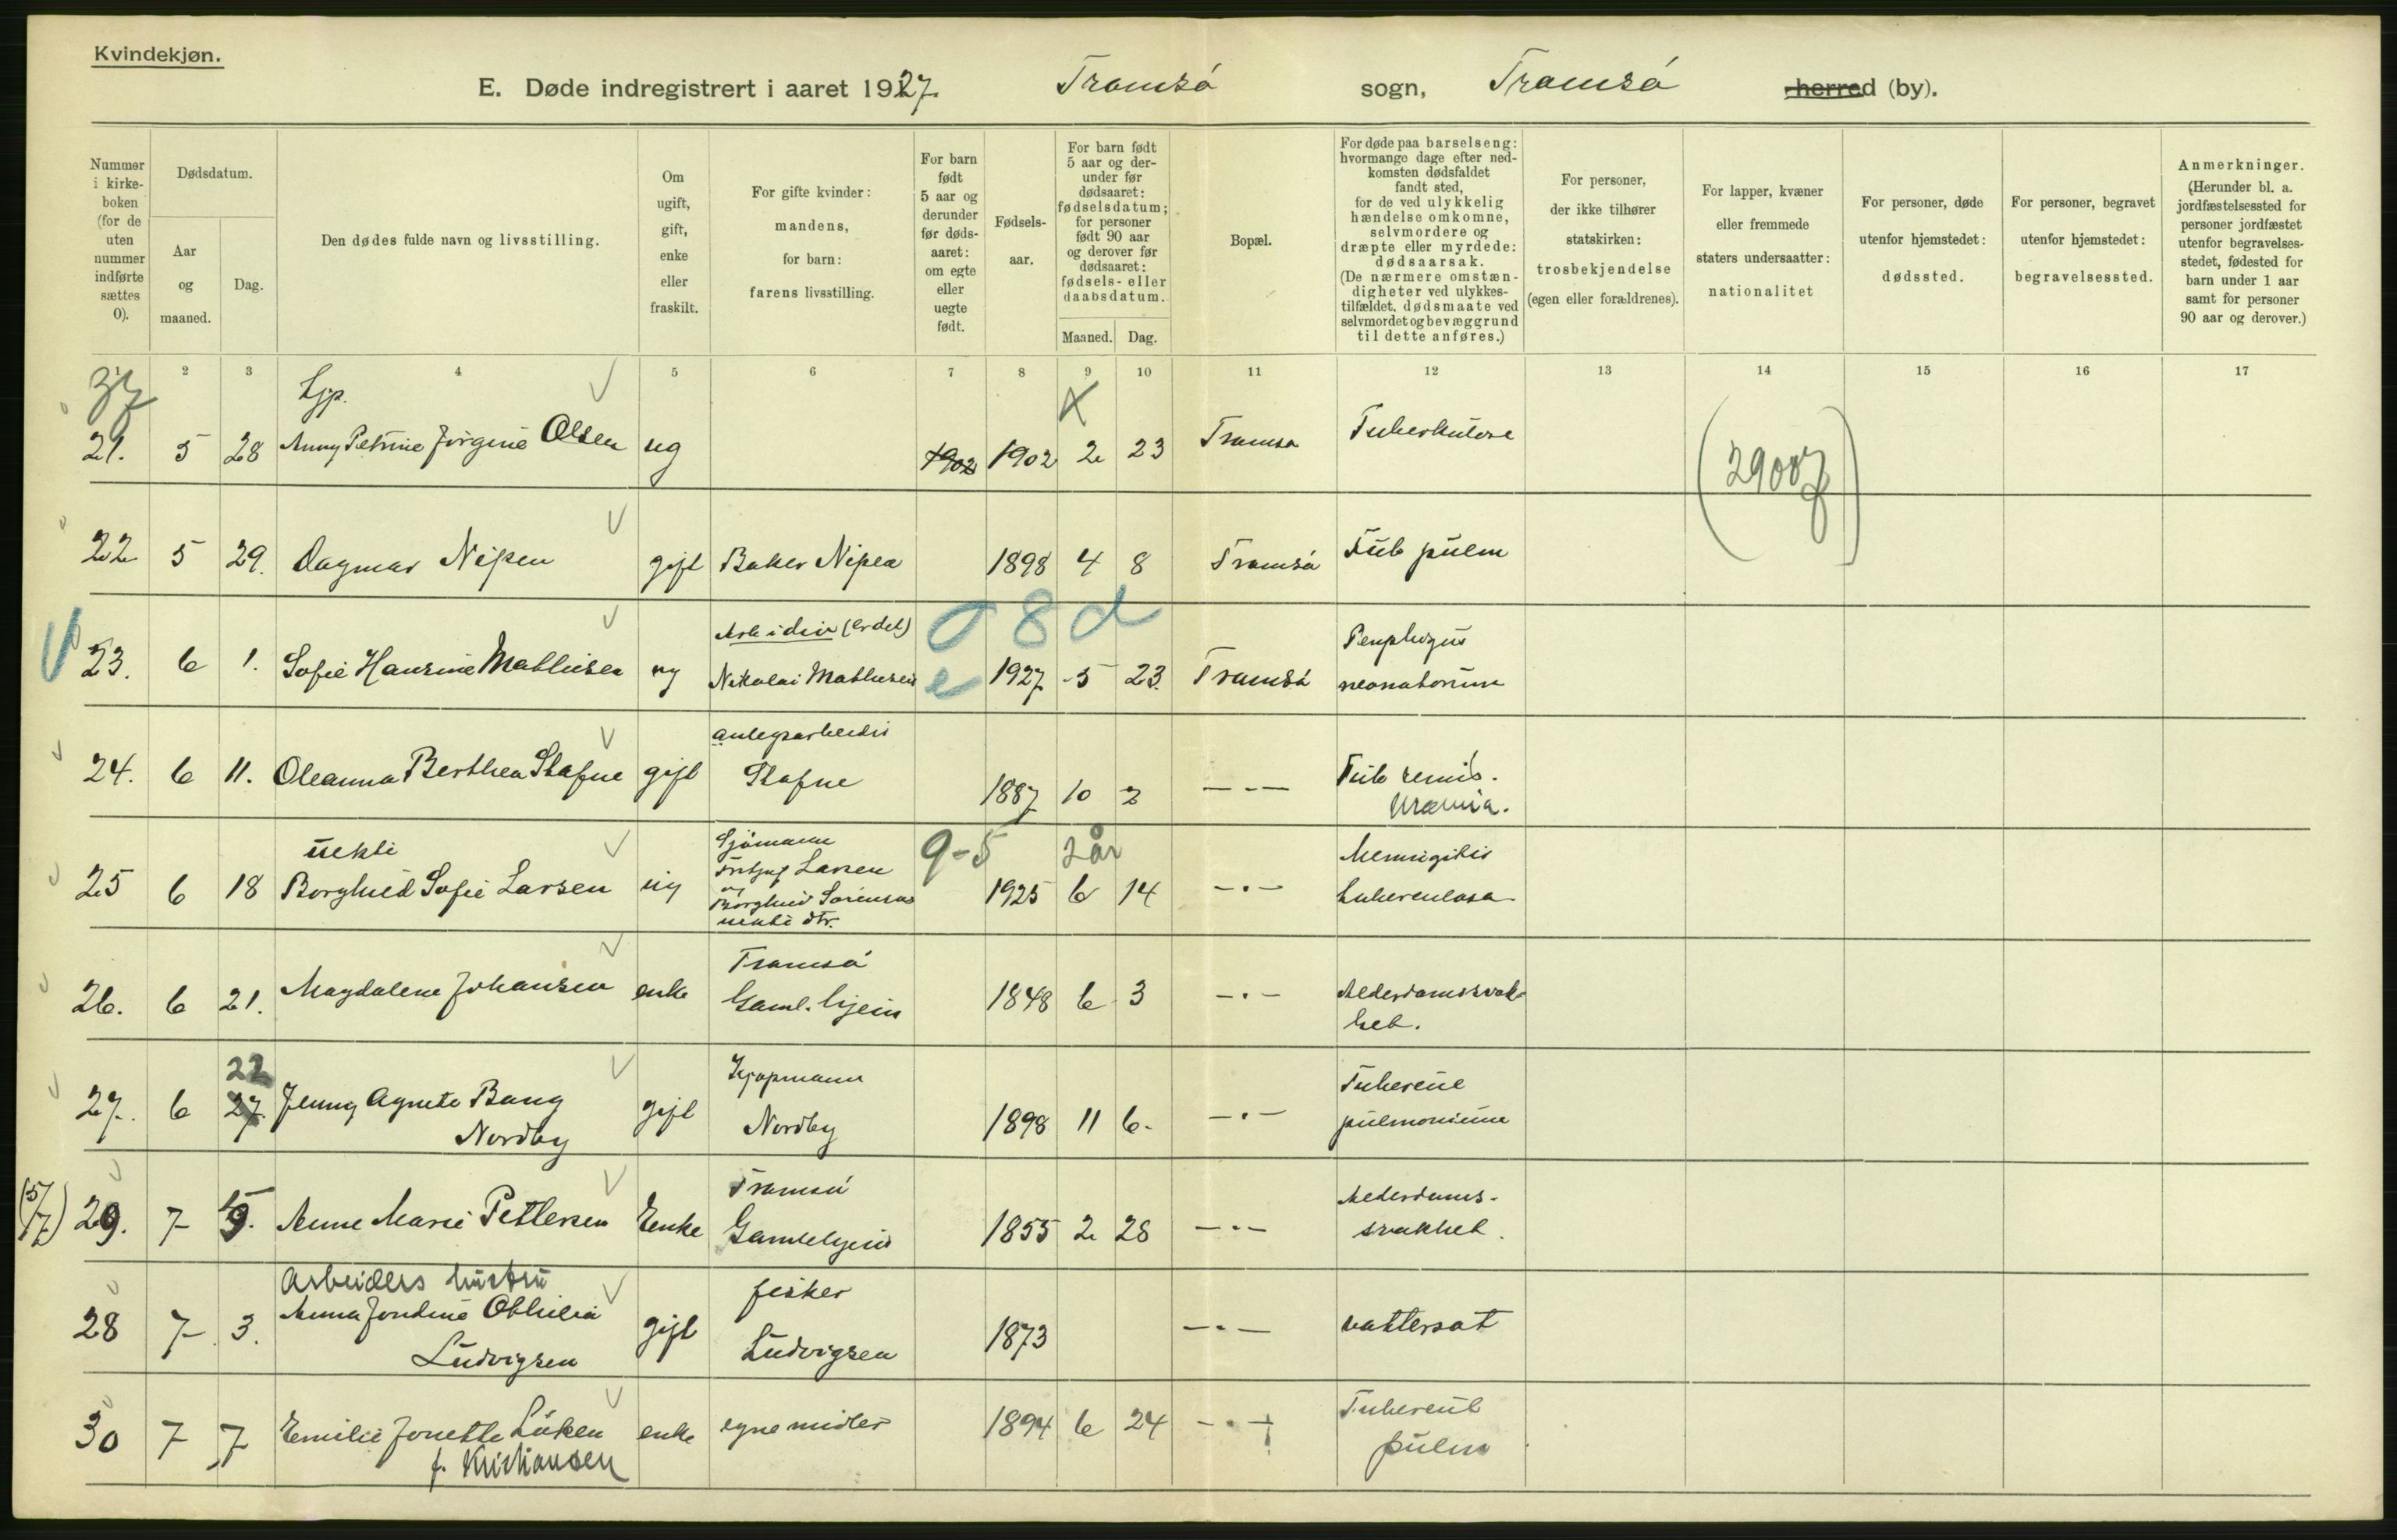 Kvindekjøn.
E. Døde indregistrert i aaret 1927. Tromsø sogn, Tromsø herred (by).
Nummer i kirkeboken (for de uten nummer indførte sættes 0).
Dødsdatum.
Aar og maaned.
Dag.
Den dødes fulde navn og livsstilling.
Om ugift, gift, enke eller fraskilt.
For gifte kvinder: mandens, for barn: farens livsstilling.
For barn født 5 aar og derunder før dødsaaret: om egte eller uegte født.
Fødselsaar.
For barn født 5 aar og derunder før dødsaaret: fødselsdatum; for personer født 90 aar og derover før dødsaaret: fødsels- eller daabsdatum.
Maaned. Dag.
Bopæl.
For døde paa barselseng: hvormange dage efter nedkomsten dødsfaldet fandt sted, for de ved ulykkelig hændelse omkomne, selvmordere og dræpte eller myrdede: dødsaarsak. (De nærmere omstændigheter ved ulykkestilfældet, dødsmaate ved selvmordet og bevæggrund til dette anføres.)
For personer, der ikke tilhører statskirken: trosbekjendelse (egen eller forældrenes).
For lapper, kvæner eller fremmede staters undersaatter: nationalitet
For personer, døde utenfor hjemstedet: dødssted.
For personer, begravet utenfor hjemstedet: begravelsessted.
Anmerkninger. (Herunder bl. a. jordfæstelsessted for personer jordfæstet utenfor begravelsesstedet, fødested for barn under 1 aar samt for personer 90 aar og derover.)
1 2 3 4 5 6 7 8 9 10 11 12 13 14 15 16 17
21. 5 28 Anny Petrine Jørgine Olsen ug 1902 1902 2 23 Tromsø Tuberkulose
(29007)
22 5 29. Dagmar Nipen gift Baker Nipen 1898 4 8 Tromsø Tub pulm
0 8 d
23. 6 1. Sofie Hansine Mathisen ug Nikolai Mathisen e 1927 5 23. Tromsø Pemphigus neonatorum
24. 6 11. Oleanna Berthea Stafne gift anlegsarbeider Stafne 1887 10 2 — " — Tub renis. Uræmia.
9-5 2 år
25 6 18 uekte Borghild Sofie Larsen ug Sjømann Larsen og Borghild Sørensens uekte dtr. 1925 6 14 — " — Meningitis tuberculosa
26. 6 21. Magdalene Johansen enke Tromsø Gaml.hjem 1848 6 3 — " — Alderdomssvakhet.
22
27. 6 27. Jenny Agnete Bang Nordby gift Kjøpmann Nordby 1898 11 6. — " — Tubercul pulmonum
(5/7) 29. 7 5. Anne Marie Pettersen Enke Tromsø Gamlehjem 1855 2 28 — " — Alderdoms-svakhet.
Arbeiders hustru
28 7 3. Anna Jordine Othilia Ludvigsen gift fisker Ludvigsen 1873 — " — vattersot
30 7 7 Emilie Jonette Løken f. Kristiansen enke egne midler 1894 6 24 — " — Tubercul pulm